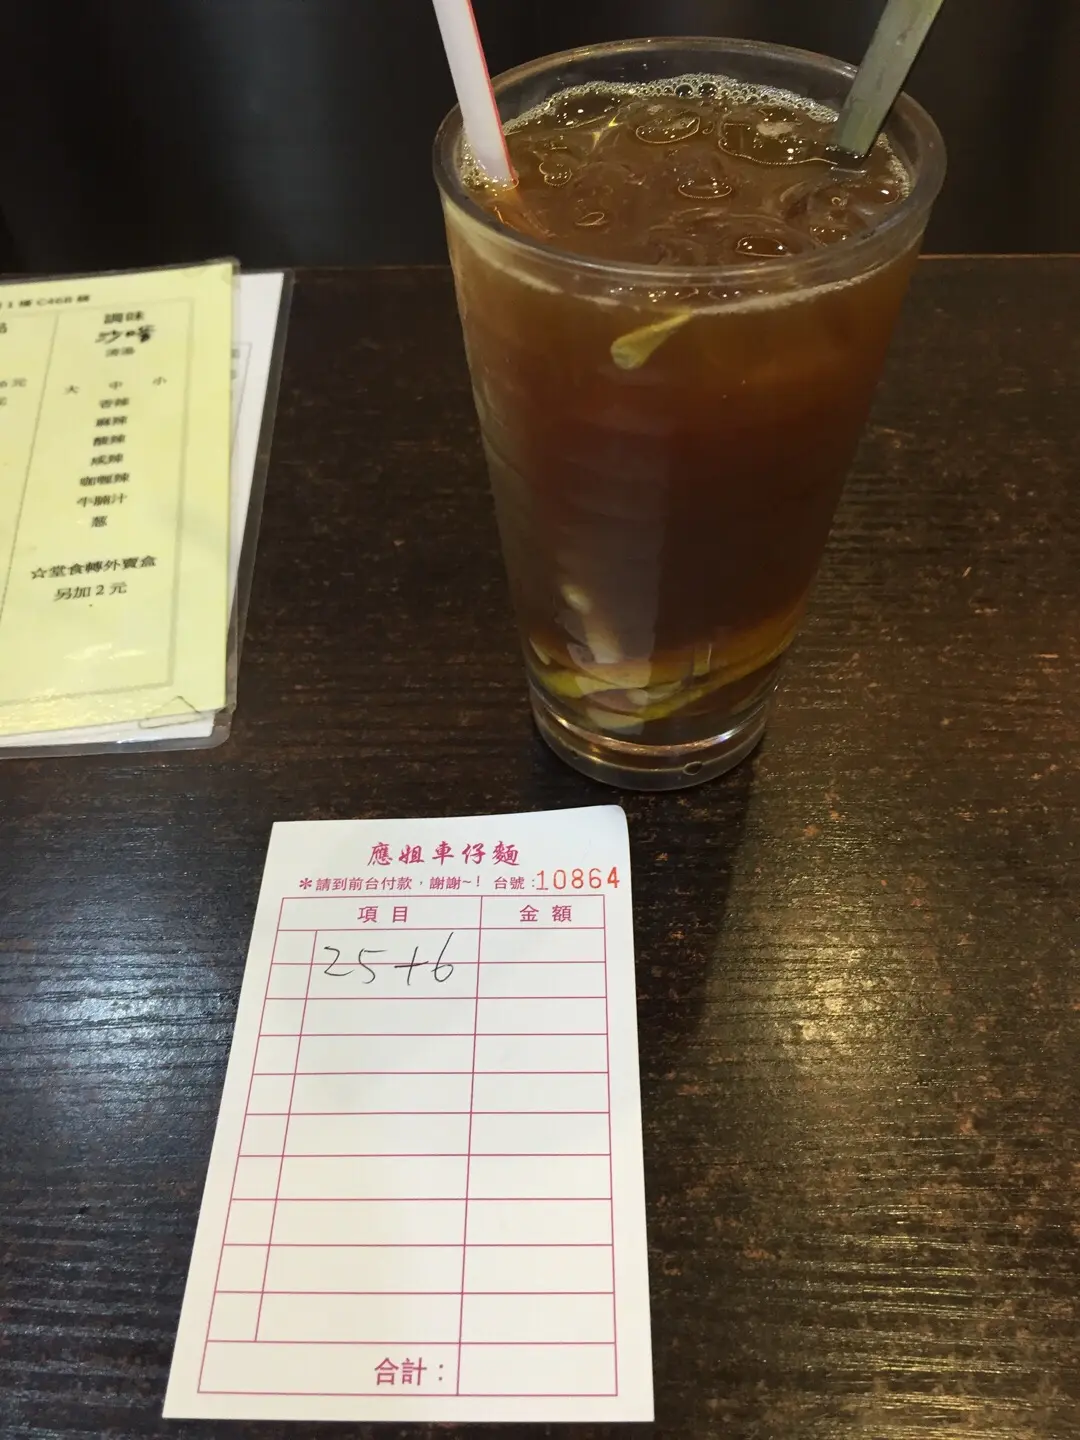 1 樓 C46B 舖
調味
沙嗲
清湯
大 中 小
香辣
麻辣
酸辣
咸辣
咖喱辣
牛腩汁
葱
☆堂食轉外賣盒
另加 2 元
元
應姐車仔麵
*請到前台付款，謝謝~! 台號:10864
項目 金額
25+6
合計: